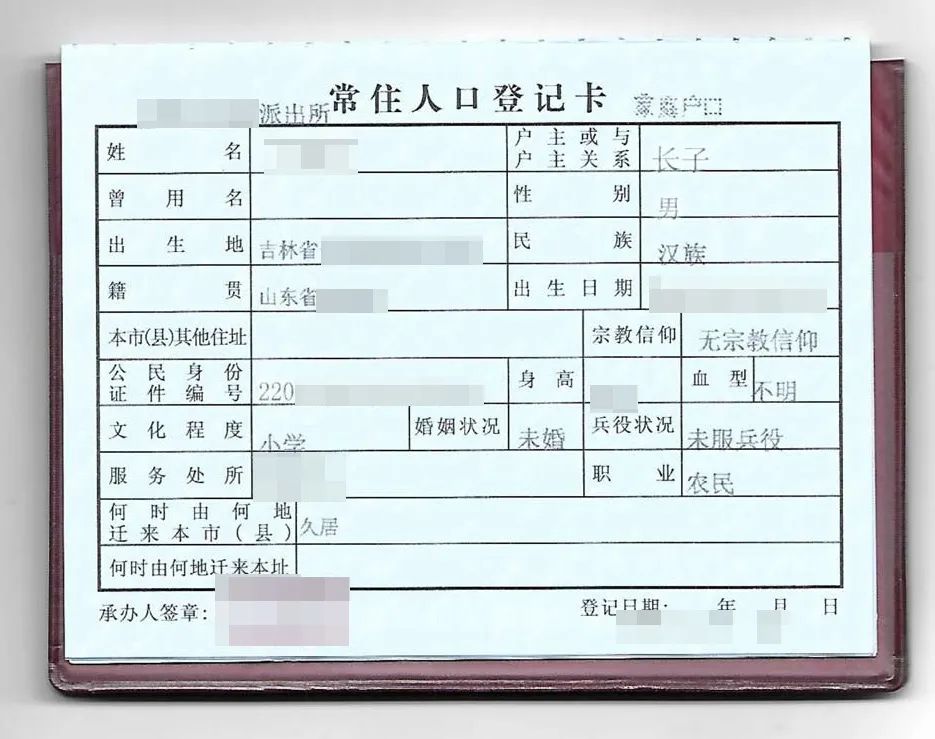 常住人口登记卡
派出所 户口
姓名 户主或与户主关系 长子
曾用名 性别 男
出生地 吉林省 民族 汉族
籍贯 山东省 出生日期
本市(县)其他住址 宗教信仰 无宗教信仰
公民身份证件编号 220 身高 血型 不明
文化程度 小学 婚姻状况 未婚 兵役状况 未服兵役
服务处所 职业 农民
何时由何地迁来本市(县) 久居
何时由何地迁来本址
承办人签章: 登记日期: 年 月 日